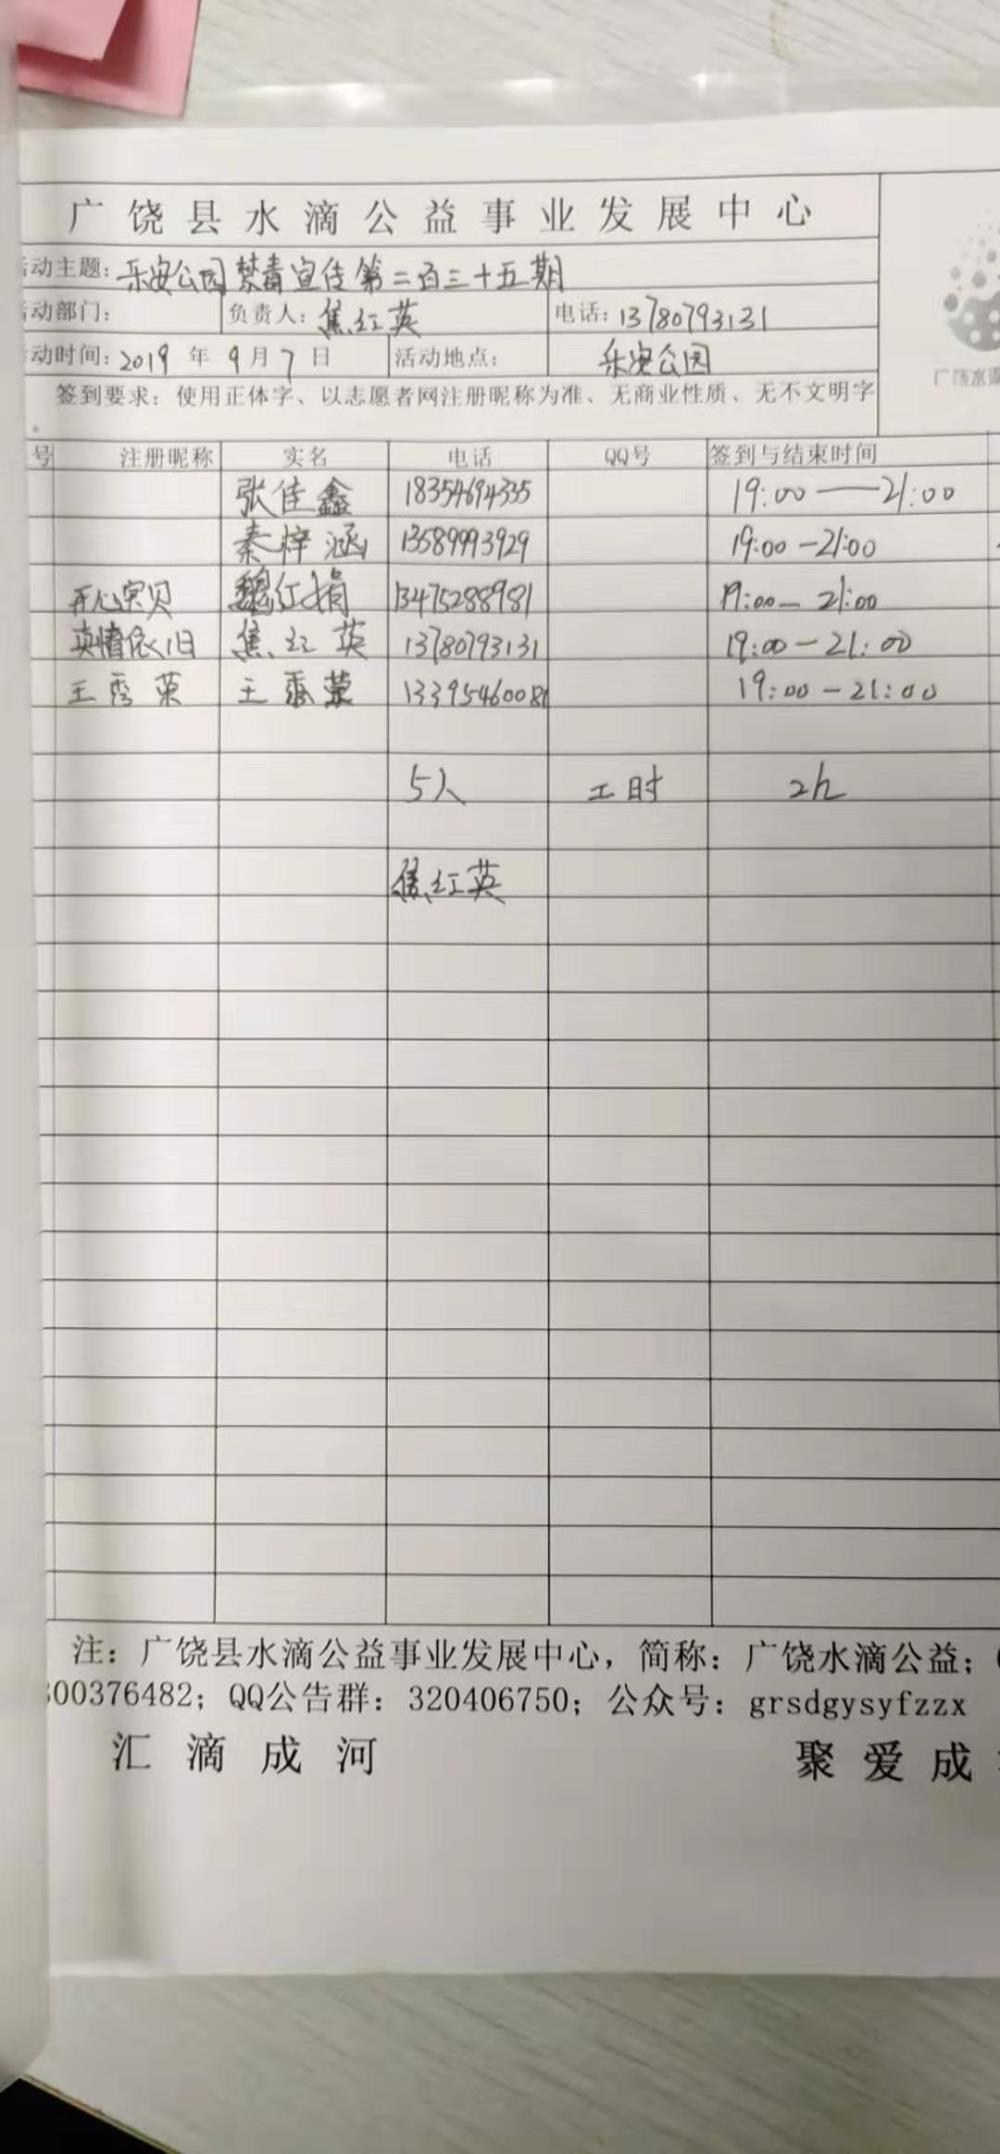 广饶县水滴公益事业发展中心
动主题：乐安公园禁毒宣传第二百三十五期
动部门： 负责人：焦红英 电话：13780793131
动时间：2019年9月7日 活动地点：乐安公园
签到要求：使用正体字、以志愿者网注册昵称为准、无商业性质、无不文明字
。
号 注册昵称 实名 电话 QQ号 签到与结束时间
张佳鑫 18354694335 19:00——21:00
秦梓涵 13589993929 19:00-21:00
开心宝贝 魏红娟 13475288981 19:00-21:00
真情依旧 焦红英 13780793131 19:00-21:00
王秀荣 王秀荣 13395460081 19:00-21:00
5人 工时 2h
焦红英
注：广饶县水滴公益事业发展中心，简称：广饶水滴公益；
300376482；QQ公告群：320406750；公众号：grsdgysyfzzx
汇滴成河 聚爱成
广饶水滴